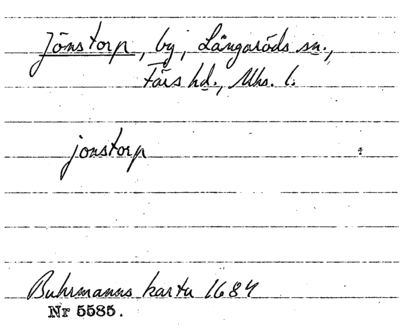 Jönstorp, by, Långaröds sn.,
Färs hd., Mhs. l.
jonstorp
Buhrmanns karta 1684
Nr 5585.